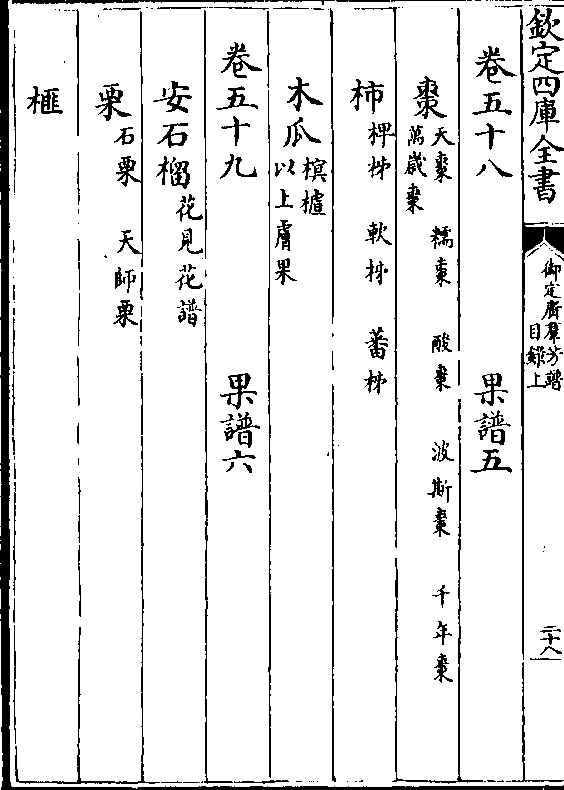 欽定四庫全書
御定廣羣芳譜
目錄上
二十八
卷五十八 果譜五
棗 天棗 糯棗 酸棗 波斯棗 千年棗
萬歲棗
柿 椑柹 軟柹 蕃柹
木瓜 榠樝
以上膚果
卷五十九 果譜六
安石榴 花見花譜
栗 石栗 天師栗
榧